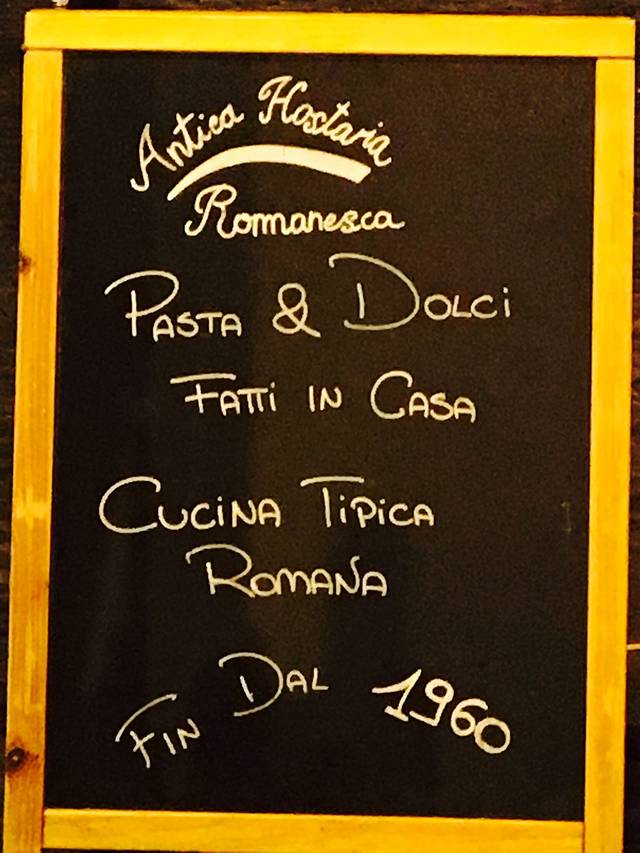 Antica Hostaria
Romanesca
PASTA & DOLCi
FATTi IN CASA
CUCiNA TiPiCA
ROMANA
FIN DAL 1960